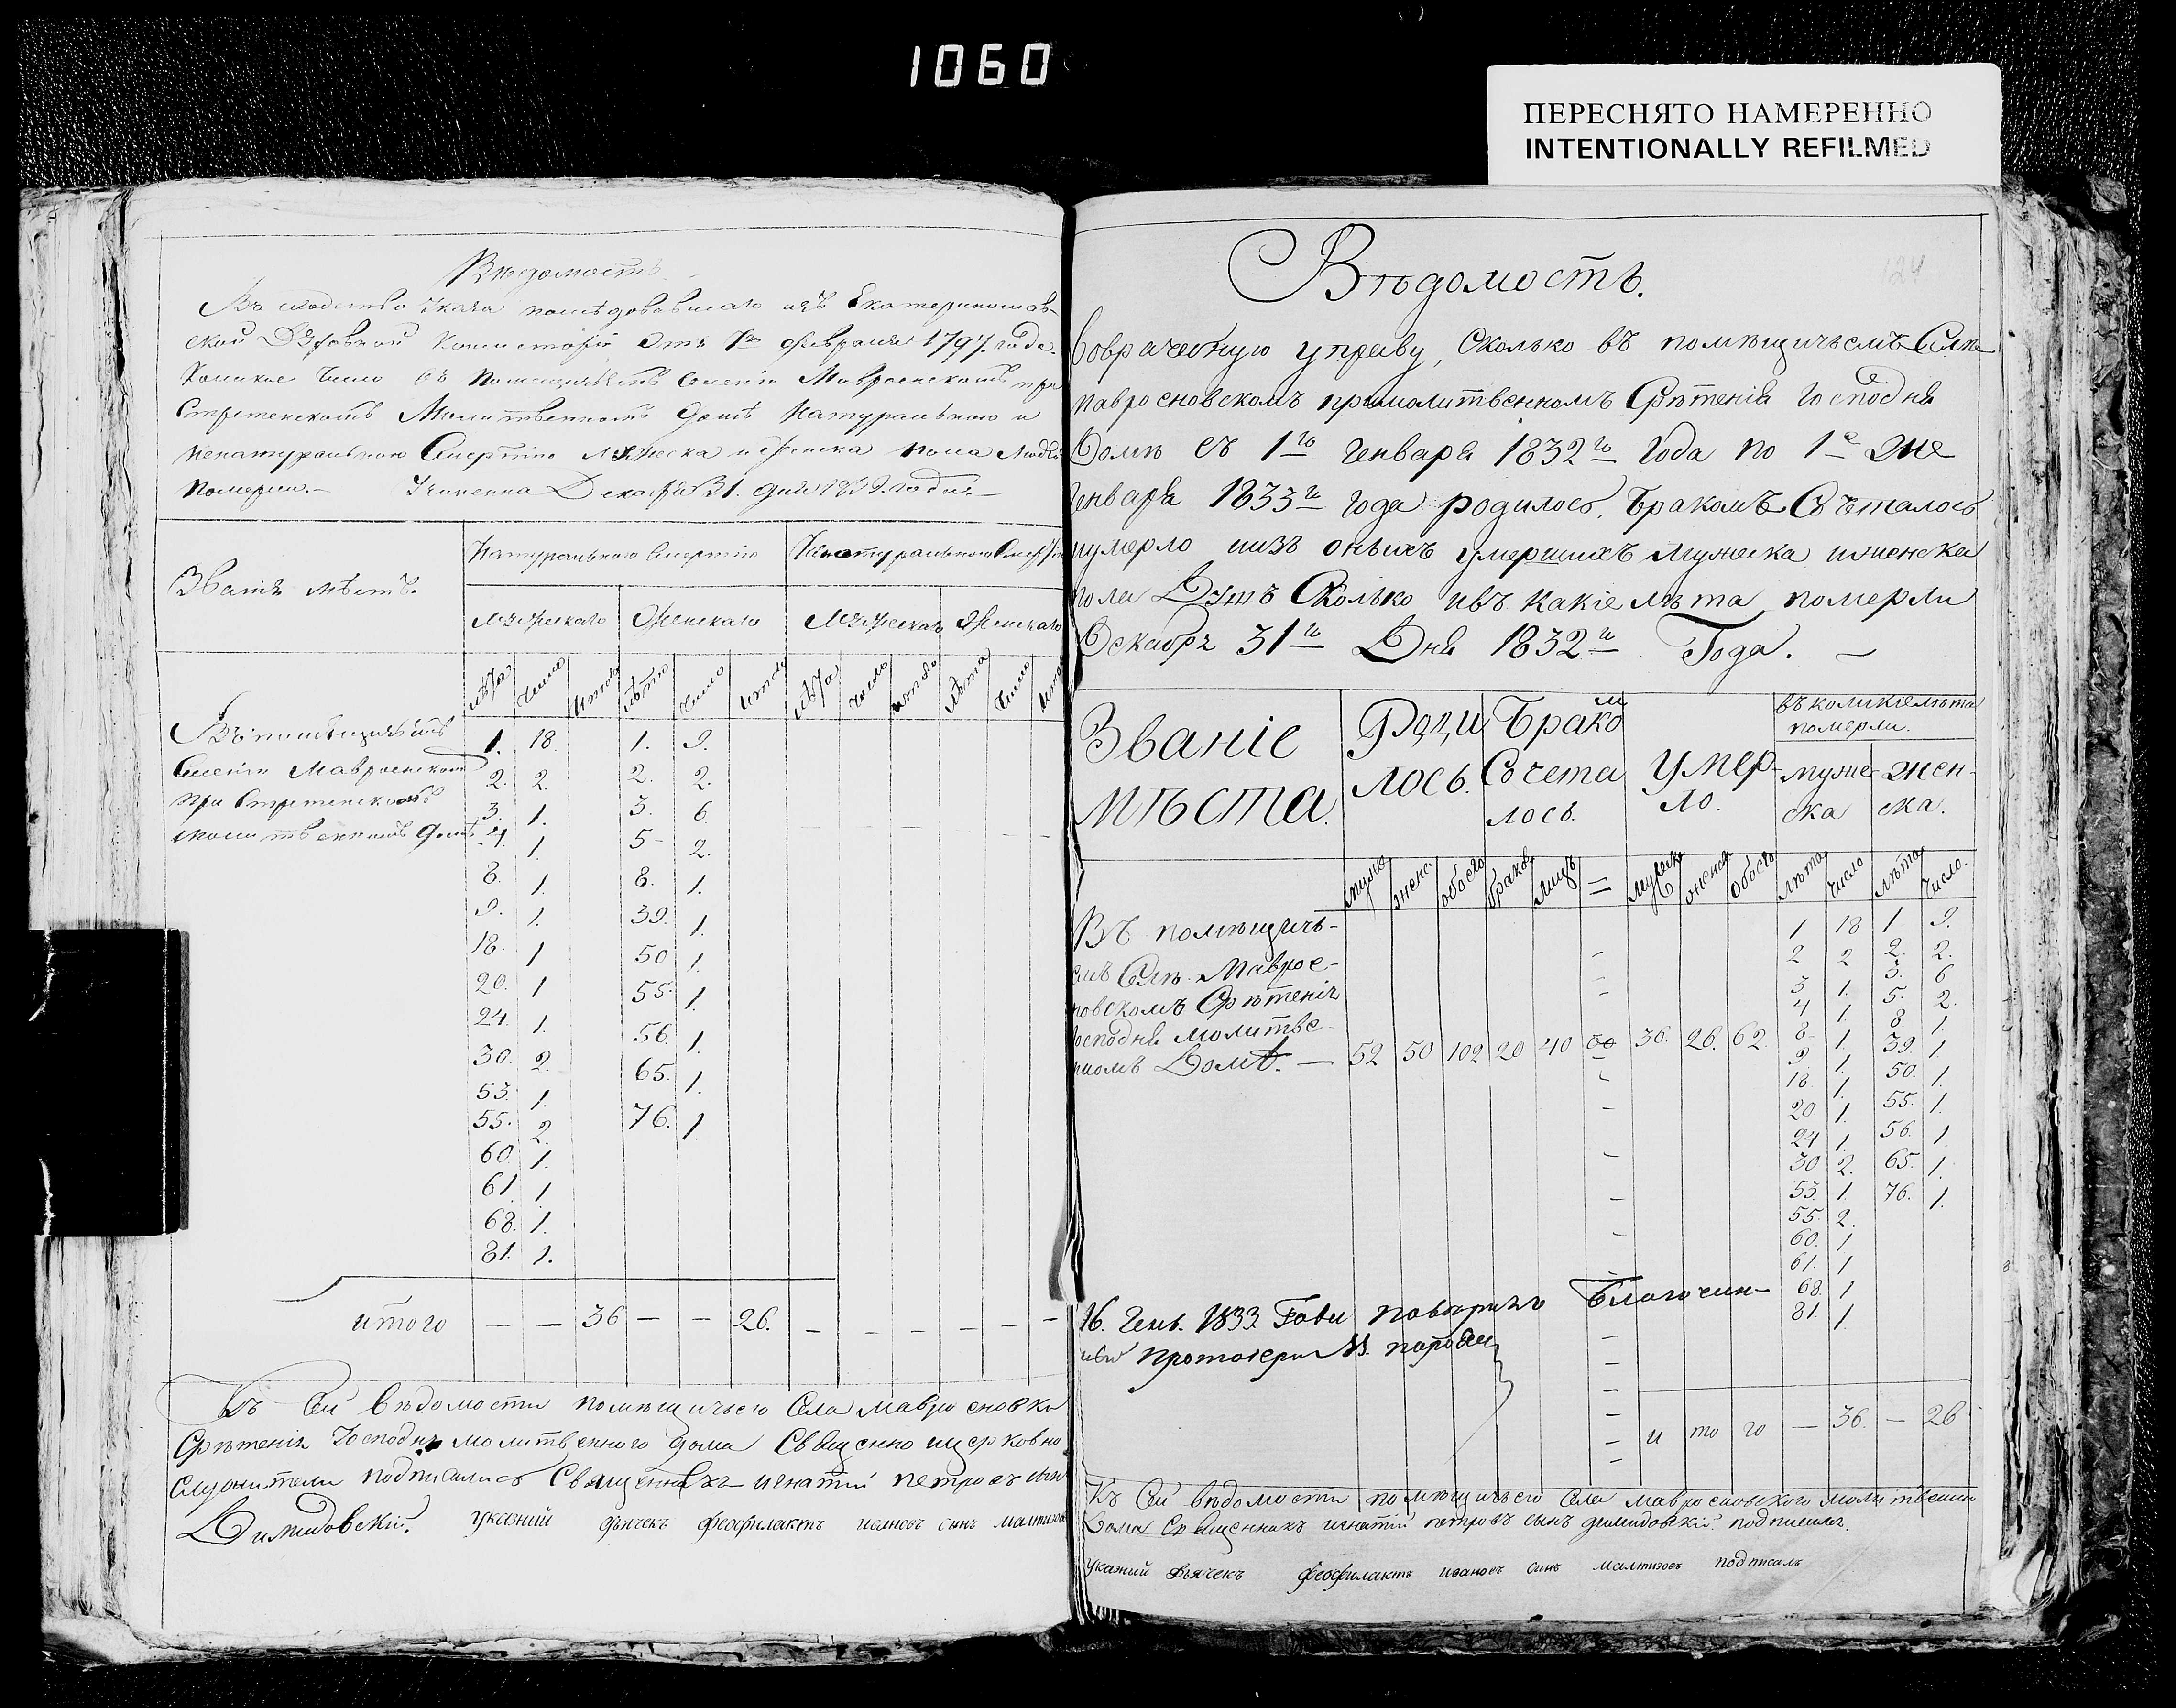 1060
ПЕРЕСНЯТО НАМЕРЕННО
INTENTIONALLY REFILMED
Вѣдомость
Въ Указа изъ Екатеринослав-
ской Духовной Консисторіи Отъ февраля 1797. года.
Коликое Число въ Помещичьемъ Селеніи при
Стретенскомъ Молитвенномъ Домѣ Натуральною и
Ненатуральною Смертію Мужеска и Женска Пола Людей
Померли.— Учинена Декабря 31. дня 1832. года.—
Званія мѣстъ.
Натуральною Смертію
Ненатуральною Смертію
Мужескаго Женскаго Мужескаго Женскаго
Лѣта Число Итого Лѣта Число Итого Лѣта Число Итого Лѣта Число
Въ помѣщичьемъ
Селеніи
при Стретенскомъ
молитвенномъ домѣ
1. 18. 1. 9.
2. 2. 2. 2.
3. 1. 3. 6
4. 1. 5- 2.
8. 1. 8. 1.
9. 1. 39. 1.
18. 1 50 1.
20. 1 55. 1.
24. 1. 56. 1.
30. 2. 65. 1.
53. 1. 76. 1.
55. 2.
60. 1.
61 1.
68. 1.
81. 1.
итого — — 36 — — 26. — — — — — —
Къ Сей вѣдомости помѣщичьего Села мавросновки
Срѣтенія Господня молитвенного дома Священно церковно
служители подписались Священникъ игнатій петровъ сынъ
Димидовскій. указний дьячекъ феофилактъ ивановъ синъ
Вѣдомость.
124
воврачебную управу, Сколько въ помѣщичьемъ Селе
мавросновскомъ примолитвенномъ Срѣтенія Господня
Домѣ съ 1го Генваря 1832го Года по 1е же
Генваря 1833го года родилось, Бракомъ Сочеталось
иумерло иизъ оныхъ умершихъ мужеска иженска
пола Душъ Сколько ивъ какіе лѣта померли
Декабря 31го Дня 1832го Года. —
Званіе
мѣста.
Роди
лось.
Брако м
Сочета
лось.
Умер-
ло.
въ коликіе лѣта
померли.
муже-
ска
жен-
ска.
муже женс. обоего браков лицъ = мужеск женск Обоего лѣта число лѣта Число.
Въ помѣщичь-
емъ Селѣ Маврос-
новскомъ Срѣтенія
Господня молитве-
номъ Домѣ. — 52 50 102 20 40 36. 26. 62.
1 18 1 9.
2 2 2. 2.
3 1. 3. 6
4 1. 5. 2.
8- 1. 8. 1.
9 1. 39. 1
18. 1. 50. 1.
20 1. 55. 1.
24 1. 56. 1
30 2. 65. 1.
53. 1. 76. 1.
55. 2.
60. 1
61. 1
68. 1
81. 1.
16. Генв. 1833 Года Благочин-
протоіерей
и то го — 36. — 26
Къ Сей вѣдомости помѣщичьего Села мавросновского молитвенно
Дома Священникъ игнатій петровъ сынъ димидовскій подписался.
указний дьячекъ феофилактъ ивановъ синъ подписалъ